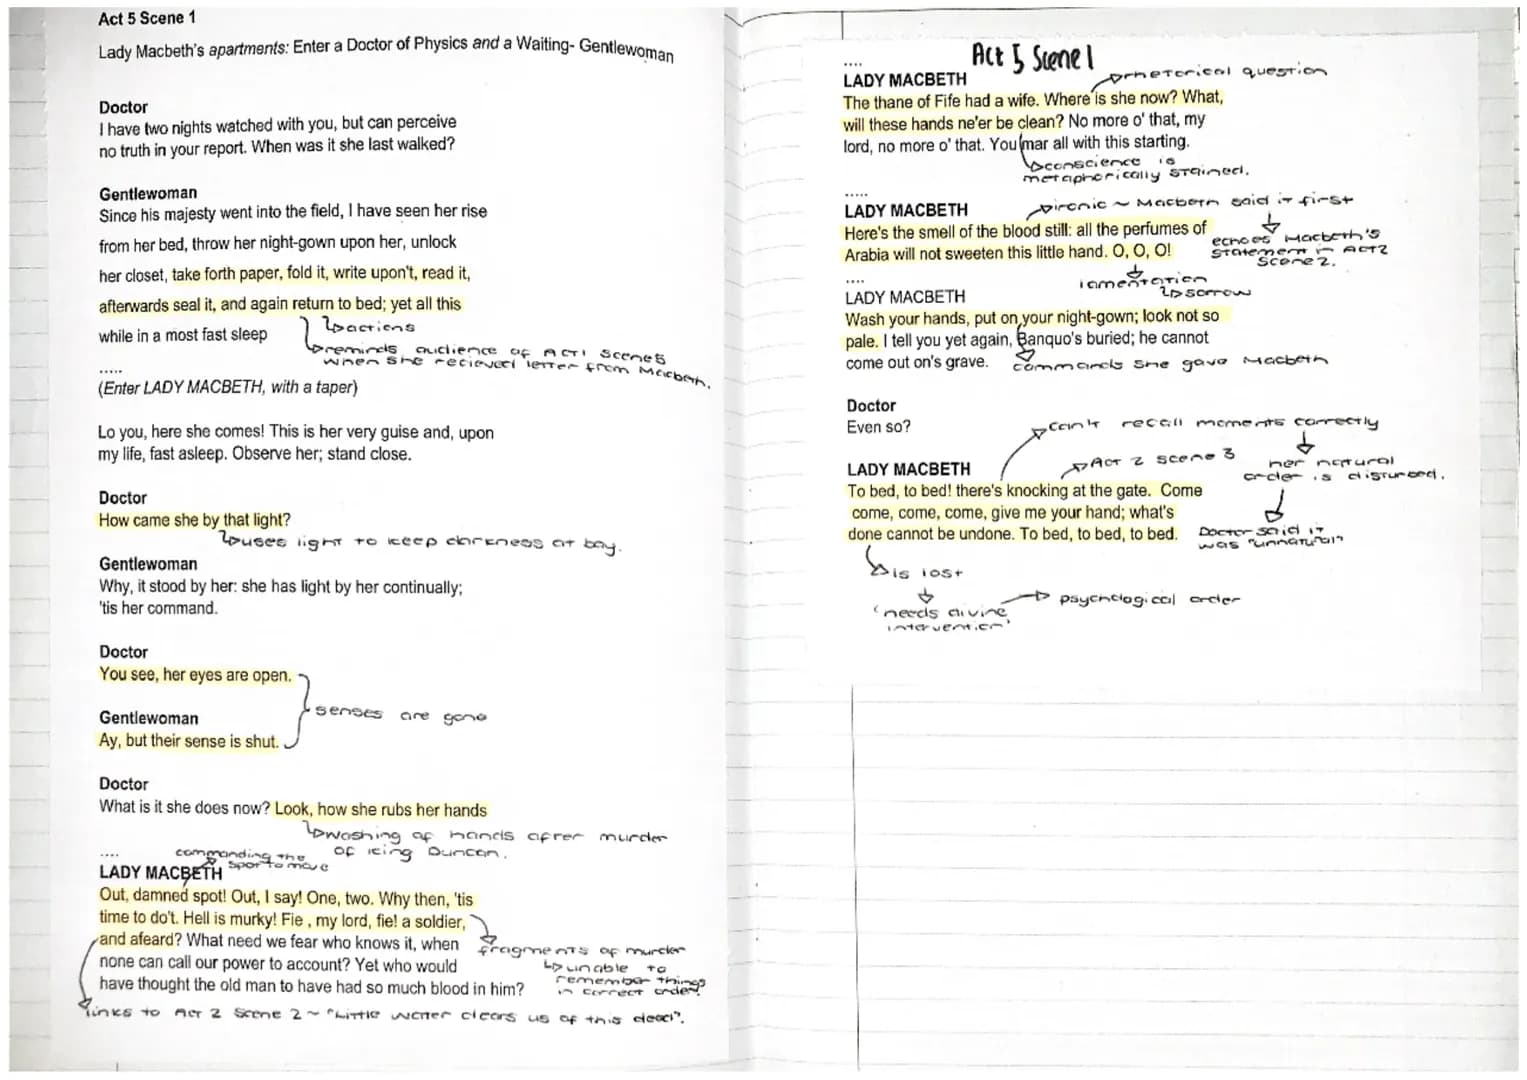 Act 5 Scene 1
Lady Macbeth's apartments: Enter a Doctor of Physics and a Waiting- Gentlewoman
Doctor
I have two nights watched with you, but can perceive
no truth in your report. When was it she last walked?
Gentlewoman
Since his majesty went into the field, I have seen her rise
from her bed, throw her night-gown upon her, unlock
her closet, take forth paper, fold it, write upon't, read it,
afterwards seal it, and again return to bed; yet all this
while in a most fast sleep
actions
reminds audience of Act 1 Scene 5
when she recieved letter from Macbeth.
.....
(Enter LADY MACBETH, with a taper)
Lo you, here she comes! This is her very guise and, upon
my life, fast asleep. Observe her; stand close.
Doctor
How came she by that light?
uses light to keep darkness at bay.
Gentlewoman
Why, it stood by her: she has light by her continually;
'tis her command.
Doctor
You see, her eyes are open.
senses are gone
Gentlewoman
Ay, but their sense is shut.
Doctor
What is it she does now? Look, how she rubs her hands
washing of hands after murder
of King Duncan.
....
commanding the
spot to move
LADY MACBETH
Out, damned spot! Out, I say! One, two. Why then, 'tis
time to do't. Hell is murky! Fie , my lord, fie! a soldier,
and afeard? What need we fear who knows it, when
none can call our power to account? Yet who would
have thought the old man to have had so much blood in him?
fragments of murder
unable to
remember things
in correct order.
links to Act 2 Scene 2 ~ "Little water clears us of this deed".
Act 5 Scene 1
....
LADY MACBETH
rhetorical question
The thane of Fife had a wife. Where is she now? What,
will these hands ne'er be clean? No more o' that, my
lord, no more o' that. You mar all with this starting.
conscience is
metaphorically stained.
.....
LADY MACBETH
ironic ~ Macbeth said it first
Here's the smell of the blood still: all the perfumes of
Arabia will not sweeten this little hand. O, O, O!
echoes Macbeth's
statement in Act 2
Scene 2.
lamentation
sorrow
....
LADY MACBETH
Wash your hands, put on your night-gown; look not so
pale. I tell you yet again, Banquo's buried; he cannot
come out on's grave.
commands she gave Macbeth
Doctor
Even so?
can't recall moments correctly
her natural
order is disturbed.
Doctor said it
was "unnatural"
LADY MACBETH
Act 2 scene 3
To bed, to bed! there's knocking at the gate. Come
come, come, come, give me your hand; what's
done cannot be undone. To bed, to bed, to bed.
is lost
'needs divine
intervention'
psychological order